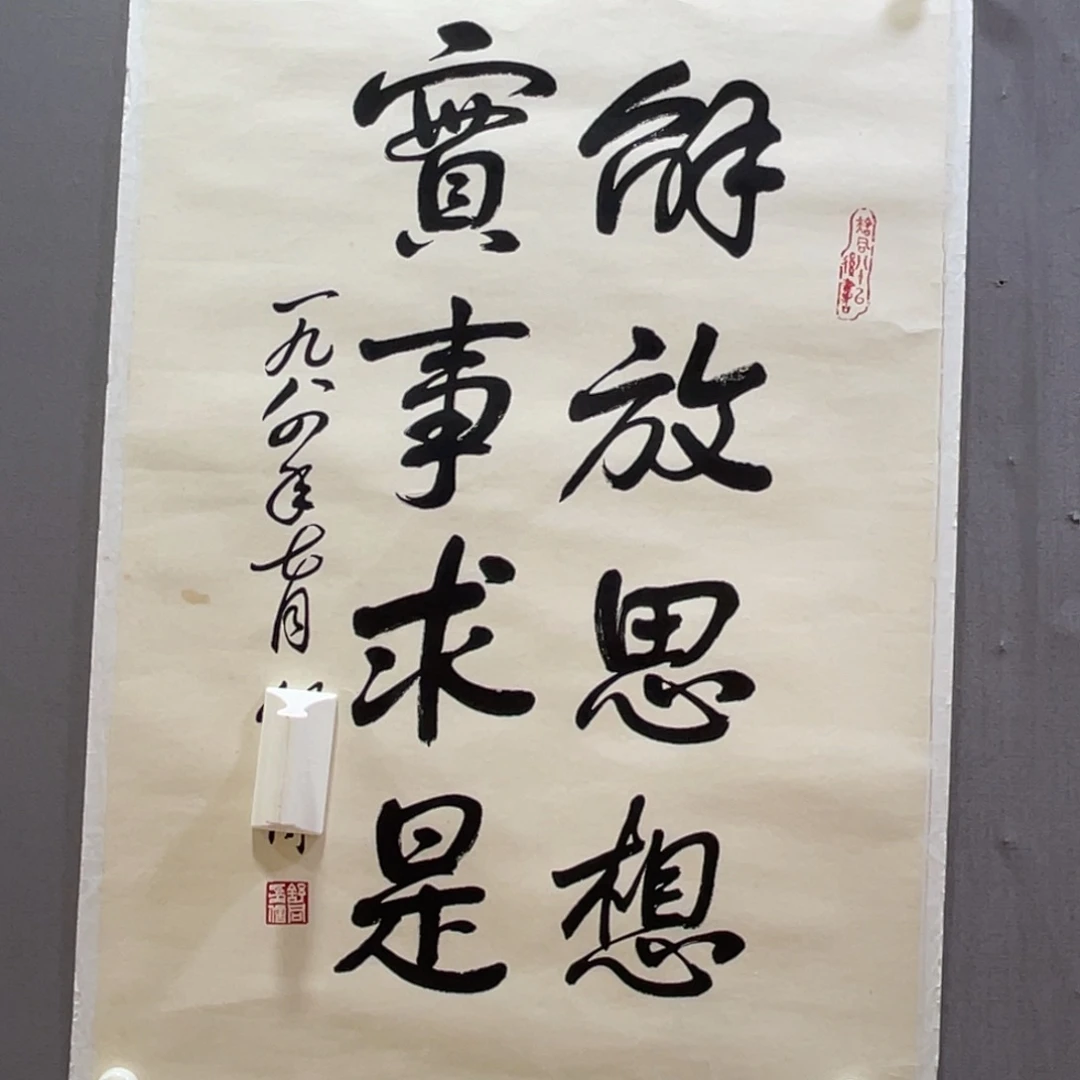 解放思想
實事求是
一九八四年七月
舒同